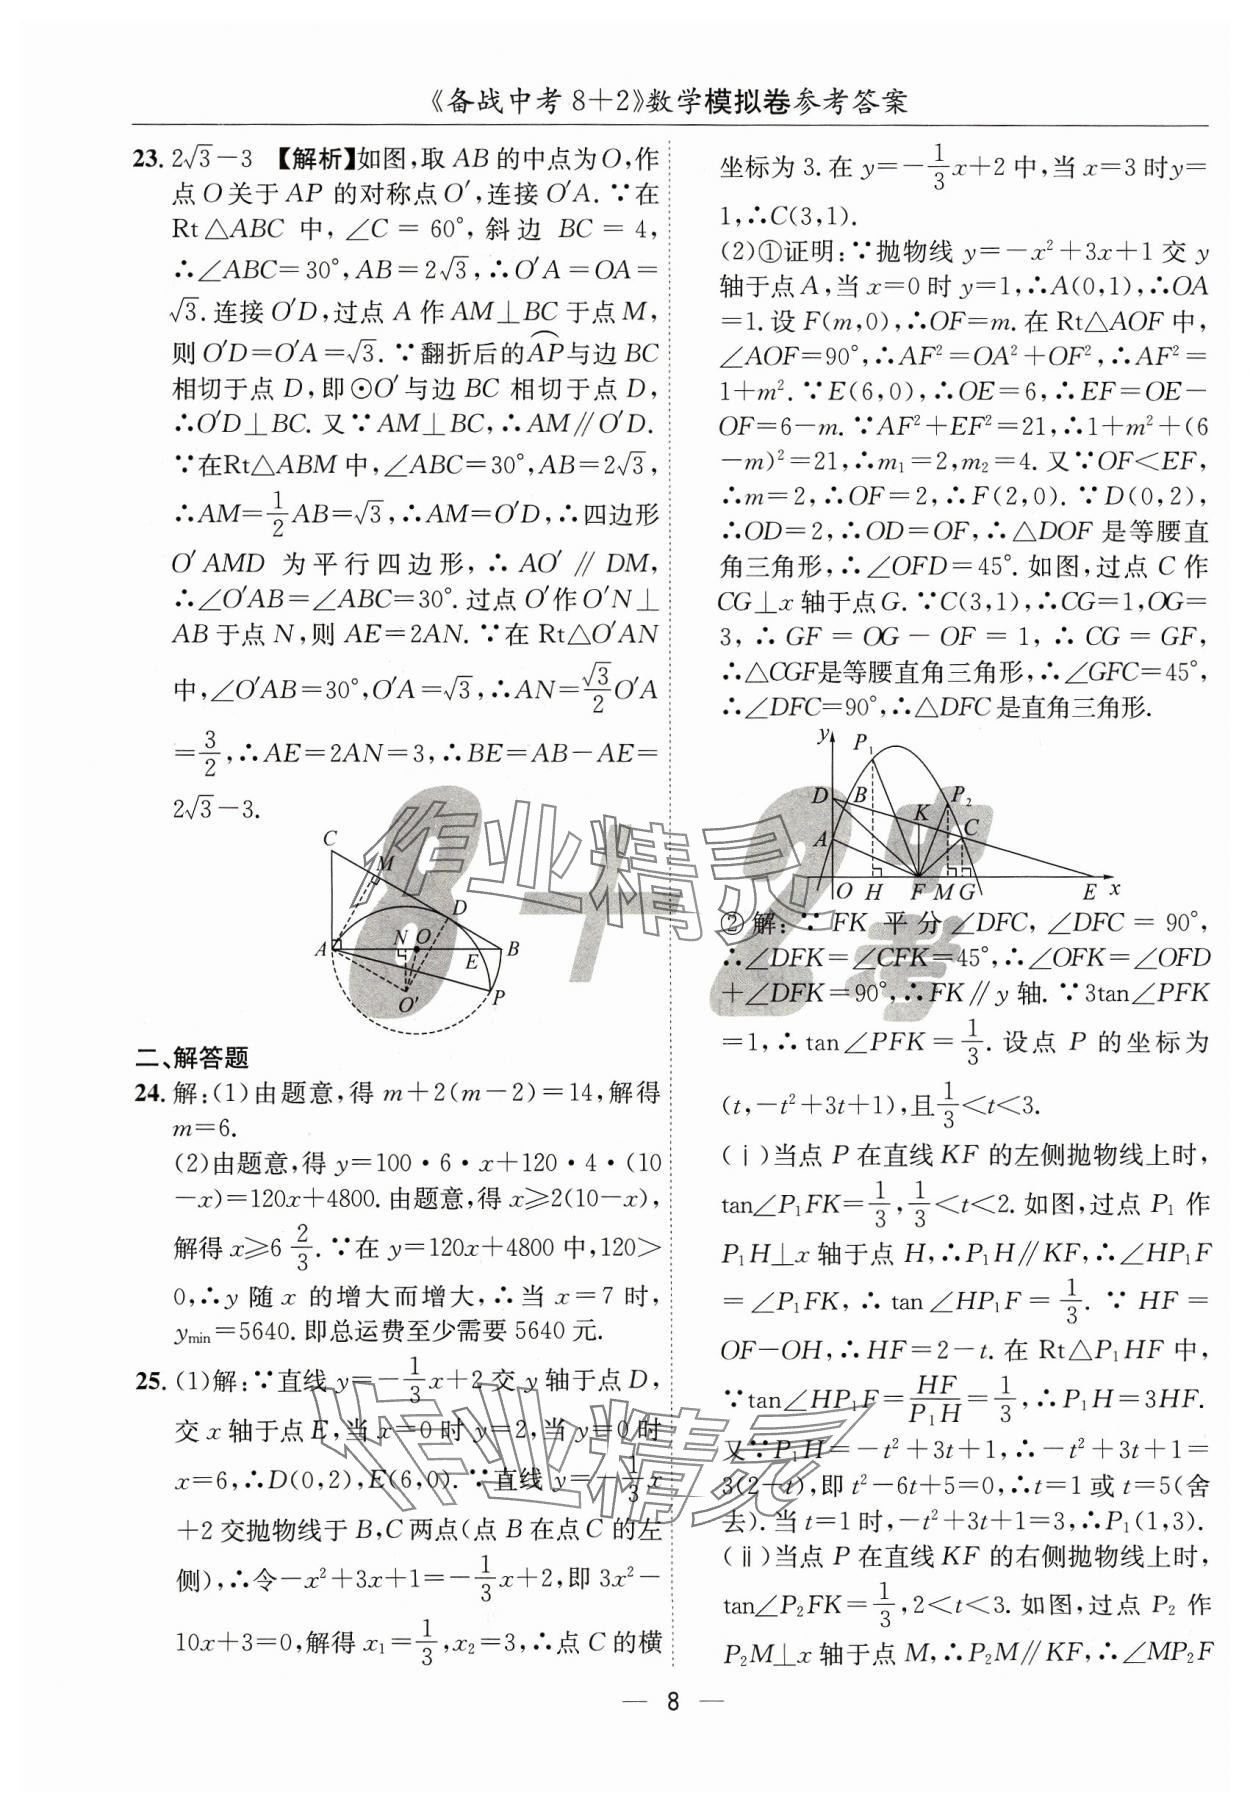 《备战中考8+2》数学模拟卷参考答案
23. 2√3-3 【解析】如图,取AB的中点为O,作
点O关于AP的对称点O′,连接O′A.∵在
Rt△ABC中,∠C=60°,斜边BC=4,
∴∠ABC=30°,AB=2√3,∴O′A=OA=
√3.连接O′D,过点A作AM⊥BC于点M,
则O′D=O′A=√3.∵翻折后的A͡P与边BC
相切于点D,即⊙O′与边BC相切于点D,
∴O′D⊥BC.又∵AM⊥BC,∴AM∥O′D.
∵在Rt△ABM中,∠ABC=30°,AB=2√3,
∴AM=1/2AB=√3,∴AM=O′D,∴四边形
O′AMD为平行四边形,∴AO′∥DM,
∴∠O′AB=∠ABC=30°.过点O′作O′N⊥
AB于点N,则AE=2AN.∵在Rt△O′AN
中,∠O′AB=30°,O′A=√3,∴AN=√3/2O′A
=3/2,∴AE=2AN=3,∴BE=AB-AE=
2√3-3.
C
M
D
A
N
O
E
B
O′
P
二、解答题
24. 解:(1)由题意,得m+2(m-2)=14,解得
m=6.
(2)由题意,得y=100·6·x+120·4·(10
-x)=120x+4800.由题意,得x≥2(10-x),
解得x≥6 2/3.∵在y=120x+4800中,120>
0,∴y随x的增大而增大,∴当x=7时,
y_min=5640.即总运费至少需要5640元.
25. (1)解:∵直线y=-1/3x+2交y轴于点D,
交x轴于点E,当x=0时y=2,当y=0时
x=6,∴D(0,2),E(6,0).∵直线y=-1/3x
+2交抛物线于B,C两点(点B在点C的左
侧),∴令-x²+3x+1=-1/3x+2,即3x²-
10x+3=0,解得x₁=1/3,x₂=3,∴点C的横
坐标为3.在y=-1/3x+2中,当x=3时y=
1,∴C(3,1).
(2)①证明:∵抛物线y=-x²+3x+1交y
轴于点A,当x=0时y=1,∴A(0,1),∴OA
=1.设F(m,0),∴OF=m.在Rt△AOF中,
∠AOF=90°,∴AF²=OA²+OF²,∴AF²=
1+m².∵E(6,0),∴OE=6,∴EF=OE-
OF=6-m.∵AF²+EF²=21,∴1+m²+(6
-m)²=21,∴m₁=2,m₂=4.又∵OF<EF,
∴m=2,∴OF=2,∴F(2,0).∵D(0,2),
∴OD=2,∴OD=OF,∴△DOF是等腰直
角三角形,∴∠OFD=45°.如图,过点C作
CG⊥x轴于点G.∵C(3,1),∴CG=1,OG=
3,∴GF=OG-OF=1,∴CG=GF,
∴△CGF是等腰直角三角形,∴∠GFC=45°,
∴∠DFC=90°,∴△DFC是直角三角形.
y
P₁
D
B
P₂
K
A
C
O H F M G E x
②解:∵FK平分∠DFC,∠DFC=90°,
∴∠DFK=∠CFK=45°,∴∠OFK=∠OFD
+∠DFK=90°,∴FK∥y轴.∵3tan∠PFK
=1,∴tan∠PFK=1/3.设点P的坐标为
(t,-t²+3t+1),且1/3<t<3.
(ⅰ)当点P在直线KF的左侧抛物线上时,
tan∠P₁FK=1/3,1/3<t<2.如图,过点P₁作
P₁H⊥x轴于点H,∴P₁H∥KF,∴∠HP₁F
=∠P₁FK,∴tan∠HP₁F=1/3.∵HF=
OF-OH,∴HF=2-t.在Rt△P₁HF中,
∵tan∠HP₁F=HF/P₁H=1/3,∴P₁H=3HF.
又∵P₁H=-t²+3t+1,∴-t²+3t+1=
3(2-t),即t²-6t+5=0,∴t=1或t=5(舍
去).当t=1时,-t²+3t+1=3,∴P₁(1,3).
(ⅱ)当点P在直线KF的右侧抛物线上时,
tan∠P₂FK=1/3,2<t<3.如图,过点P₂作
P₂M⊥x轴于点M,∴P₂M∥KF,∴∠MP₂F
— 8 —
8+2中考
作业精灵
作业精灵